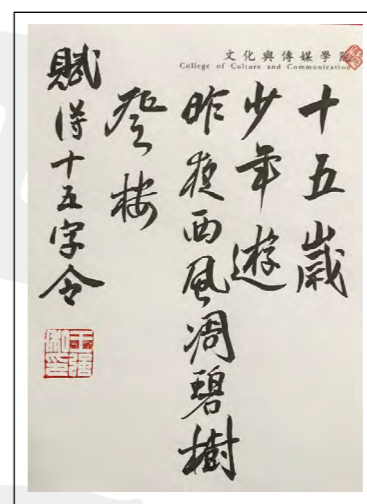 文化與傳媒學院
College of Culture and Communication
十五歲
少年遊
昨夜西風凋碧樹
登樓
賦得十五字令